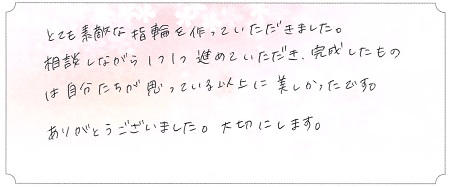 とても素敵な指輪を作っていただきました。
相談しながら1つ1つ進めていただき、完成したもの
は自分たちが思っている以上に美しかったです。
ありがとうございました。大切にします。